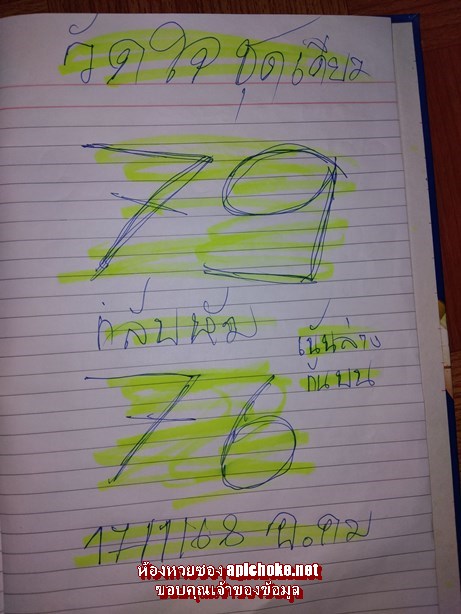 วัดใจ ชุดเดียว
79
กลับหัว
เน้นล่าง
กันบน
76
17/1/68 อ.คม
ห้องหวยซอง apichoke.net
ขอบคุณเจ้าของข้อมูล